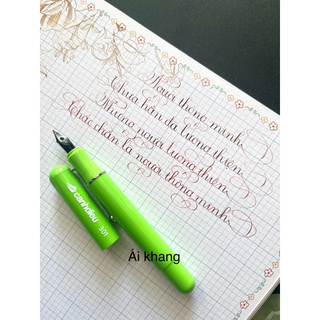 Người thông minh
Chưa hẳn đã lương thiện
Nhưng người lương thiện
Chắc chắn là người thông minh
canhdieu 301
Ái khang